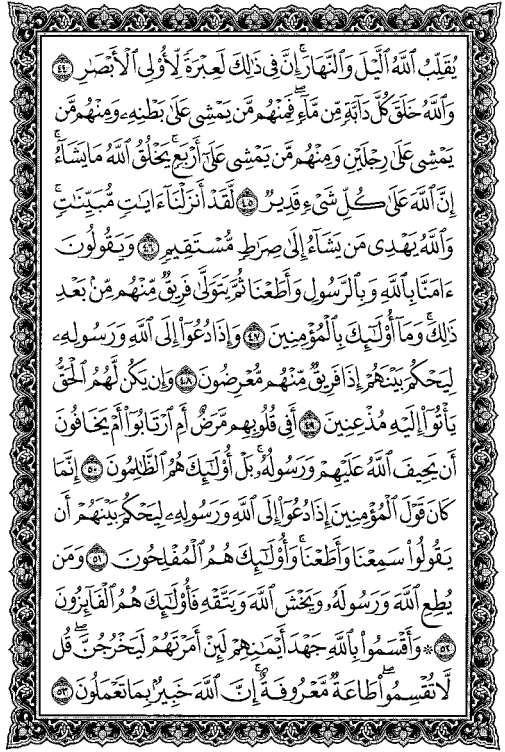 يُقَلِّبُ ٱللَّهُ ٱلَّيْلَ وَٱلنَّهَارَۚ إِنَّ فِى ذَٰلِكَ لَعِبْرَةً لِّأُو۟لِى ٱلْأَبْصَٰرِ ٤٤
وَٱللَّهُ خَلَقَ كُلَّ دَآبَّةٍ مِّن مَّآءٍۖ فَمِنْهُم مَّن يَمْشِى عَلَىٰ بَطْنِهِۦ وَمِنْهُم مَّن
يَمْشِى عَلَىٰ رِجْلَيْنِ وَمِنْهُم مَّن يَمْشِى عَلَىٰٓ أَرْبَعٍۚ يَخْلُقُ ٱللَّهُ مَا يَشَآءُۚ
إِنَّ ٱللَّهَ عَلَىٰ كُلِّ شَىْءٍ قَدِيرٌ ٤٥ لَّقَدْ أَنزَلْنَآ ءَايَٰتٍ مُّبَيِّنَٰتٍۚ
وَٱللَّهُ يَهْدِى مَن يَشَآءُ إِلَىٰ صِرَٰطٍ مُّسْتَقِيمٍ ٤٦ وَيَقُولُونَ
ءَامَنَّا بِٱللَّهِ وَبِٱلرَّسُولِ وَأَطَعْنَا ثُمَّ يَتَوَلَّىٰ فَرِيقٌ مِّنْهُم مِّنۢ بَعْدِ
ذَٰلِكَۚ وَمَآ أُو۟لَٰٓئِكَ بِٱلْمُؤْمِنِينَ ٤٧ وَإِذَا دُعُوٓا۟ إِلَى ٱللَّهِ وَرَسُولِهِۦ
لِيَحْكُمَ بَيْنَهُمْ إِذَا فَرِيقٌ مِّنْهُم مُّعْرِضُونَ ٤٨ وَإِن يَكُن لَّهُمُ ٱلْحَقُّ
يَأْتُوٓا۟ إِلَيْهِ مُذْعِنِينَ ٤٩ أَفِى قُلُوبِهِم مَّرَضٌ أَمِ ٱرْتَابُوٓا۟ أَمْ يَخَافُونَ
أَن يَحِيفَ ٱللَّهُ عَلَيْهِمْ وَرَسُولُهُۥۚ بَلْ أُو۟لَٰٓئِكَ هُمُ ٱلظَّٰلِمُونَ ٥٠ إِنَّمَا
كَانَ قَوْلَ ٱلْمُؤْمِنِينَ إِذَا دُعُوٓا۟ إِلَى ٱللَّهِ وَرَسُولِهِۦ لِيَحْكُمَ بَيْنَهُمْ أَن
يَقُولُوا۟ سَمِعْنَا وَأَطَعْنَاۚ وَأُو۟لَٰٓئِكَ هُمُ ٱلْمُفْلِحُونَ ٥١ وَمَن
يُطِعِ ٱللَّهَ وَرَسُولَهُۥ وَيَخْشَ ٱللَّهَ وَيَتَّقْهِ فَأُو۟لَٰٓئِكَ هُمُ ٱلْفَآئِزُونَ
٥٢ ۞ وَأَقْسَمُوا۟ بِٱللَّهِ جَهْدَ أَيْمَٰنِهِمْ لَئِنْ أَمَرْتَهُمْ لَيَخْرُجُنَّۖ قُل
لَّا تُقْسِمُوا۟ۖ طَاعَةٌ مَّعْرُوفَةٌۚ إِنَّ ٱللَّهَ خَبِيرٌۢ بِمَا تَعْمَلُونَ ٥٣